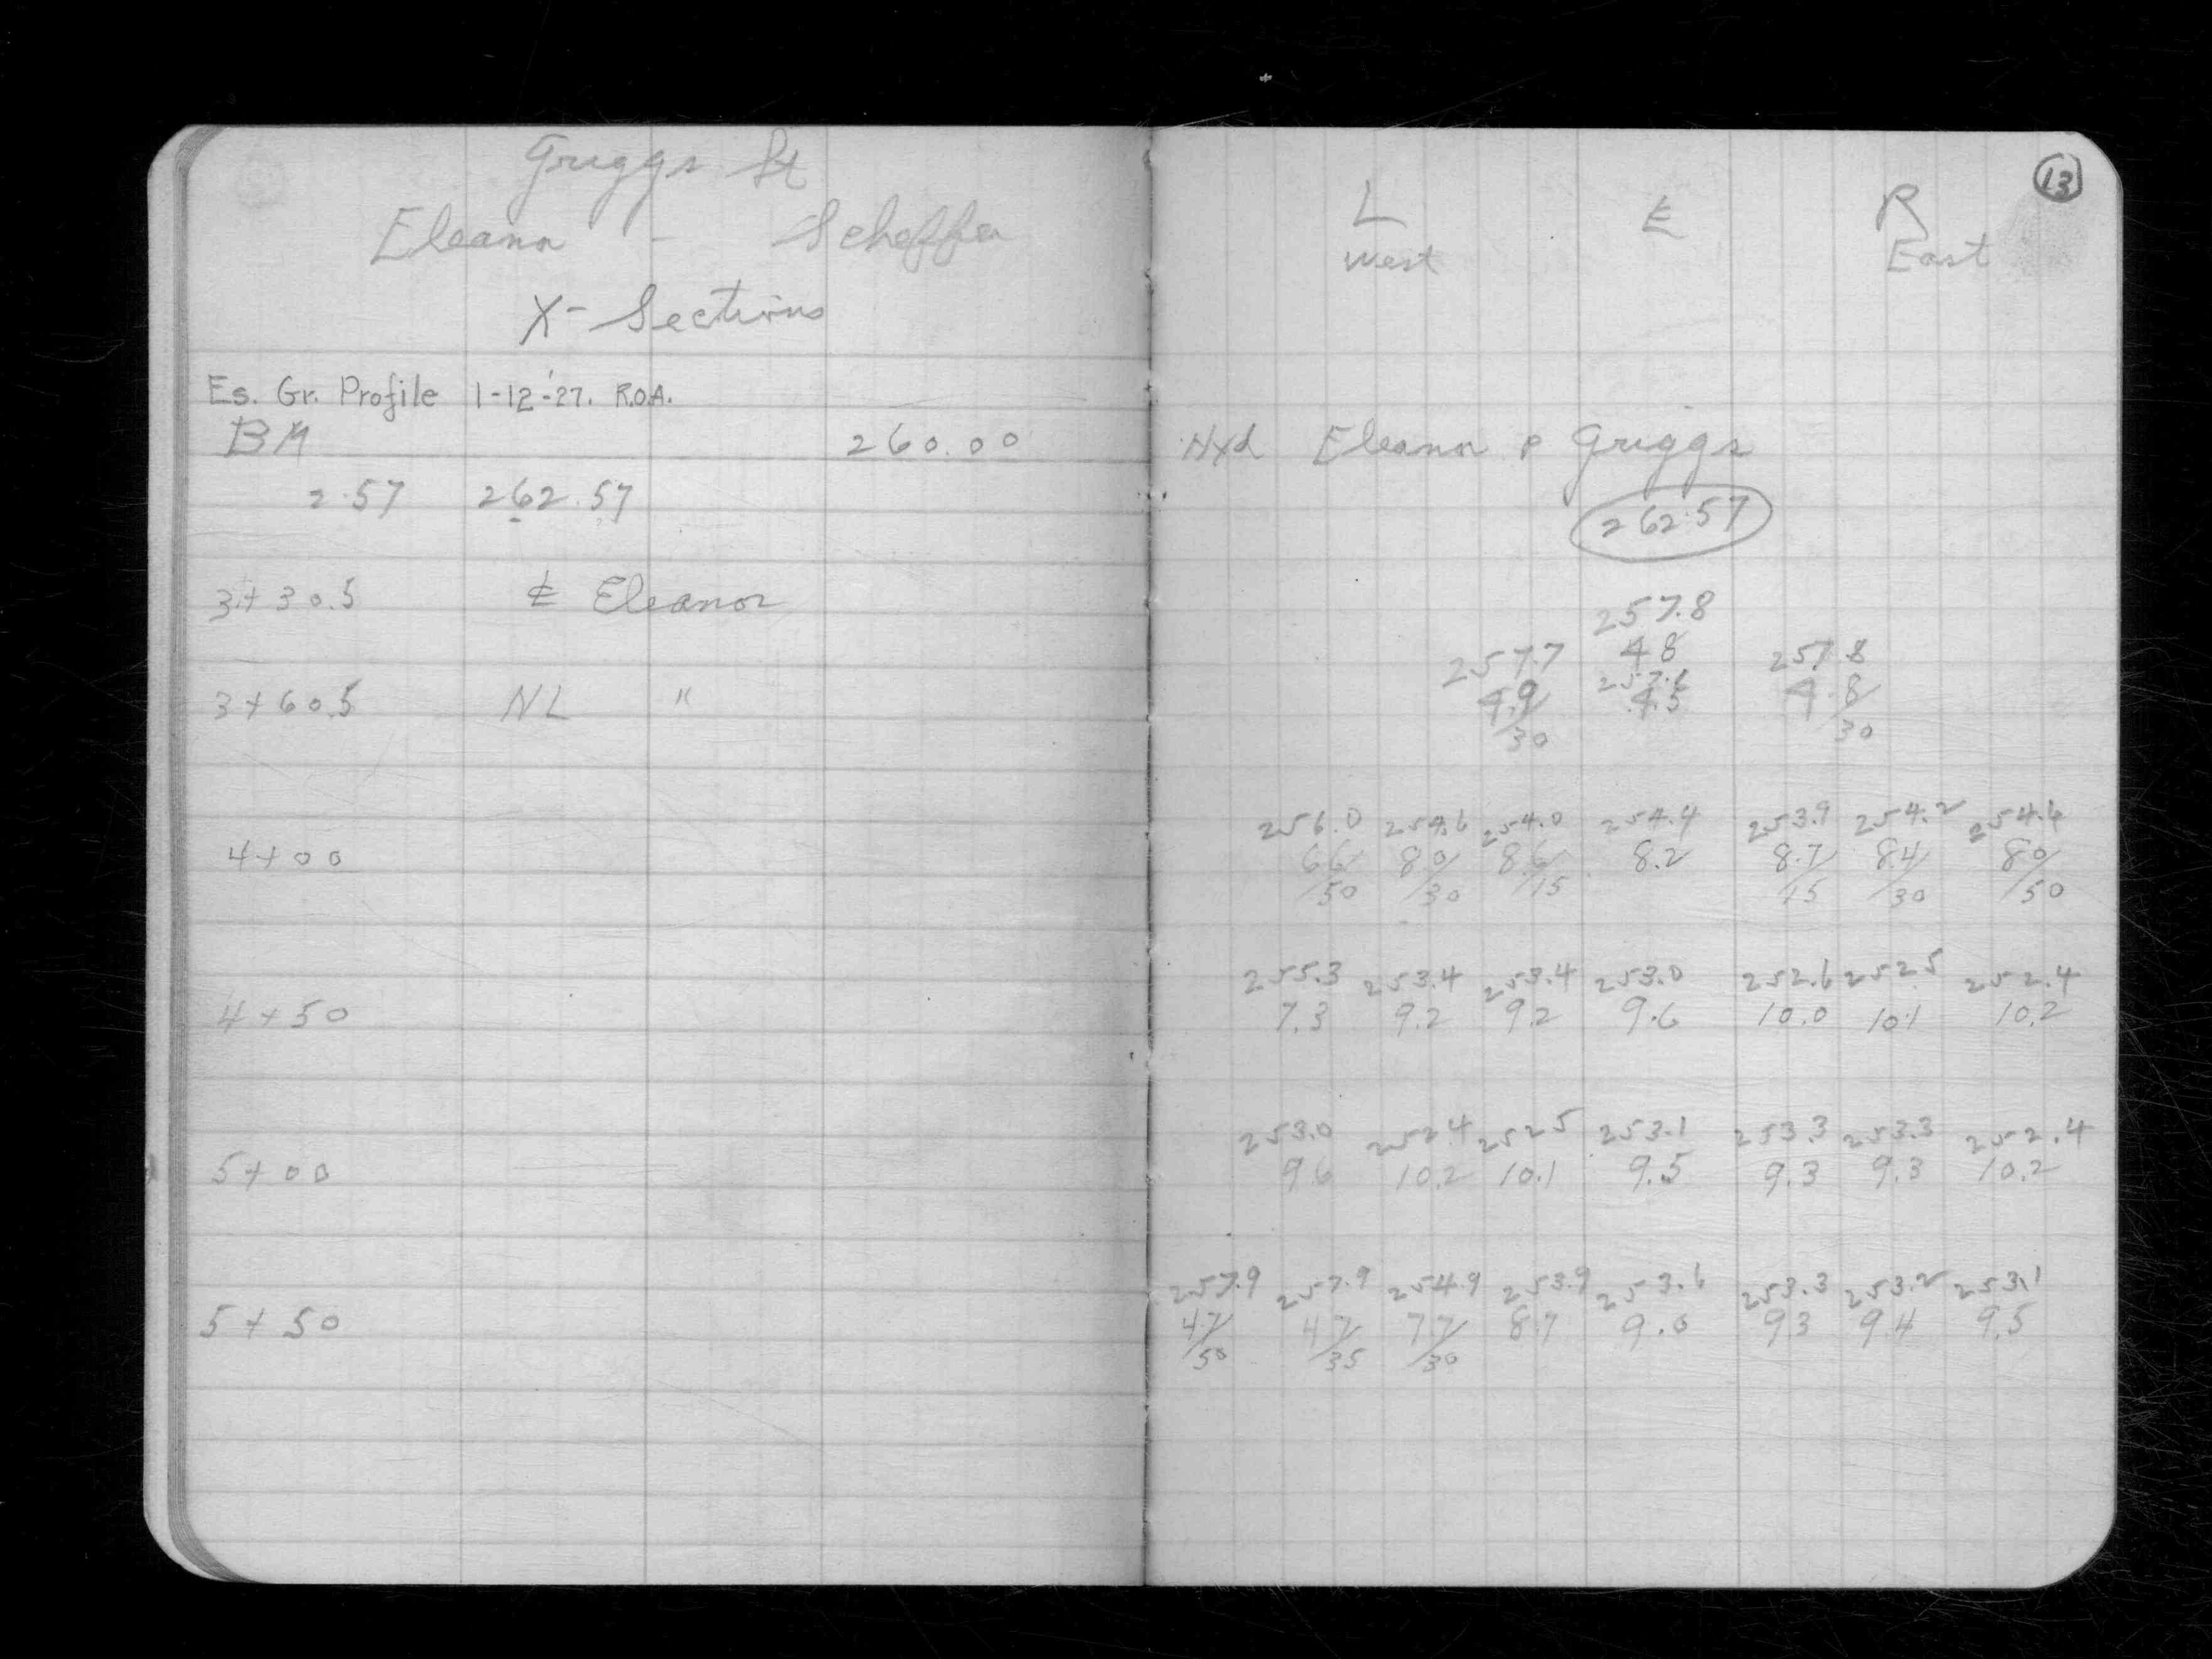 Griggs St
Eleanor - Scheffer
X-Sections
Es. Gr. Profile 1-12-'27. R.O.A.
BM 260.00
2.57 262.57
3+30.5 ℄ Eleanor
3+60.5 NL "
4+00
4+50
5+00
5+50
13
L ℄ R
West East
Hyd Eleanor & Griggs
262.57
257.8
4.8
257.7 257.8
4.9 4.5 4.8
30 30
256.0 254.6 254.0 254.4 253.9 254.2 254.6
6.6 8.0 8.6 8.2 8.7 8.4 8.0
50 30 15 15 30 50
255.3 253.4 253.4 253.0 252.6 252.5 252.4
7.3 9.2 9.2 9.6 10.0 10.1 10.2
253.0 252.4 252.5 253.1 253.3 253.3 252.4
9.6 10.2 10.1 9.5 9.3 9.3 10.2
257.9 257.9 254.9 253.9 253.6 253.3 253.2 253.1
4.7 4.7 7.7 8.7 9.0 9.3 9.4 9.5
50 35 30